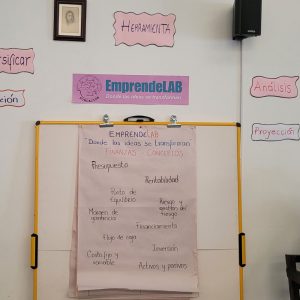 HERRAMIENTA
sificar
EmprendeLAB
Donde las ideas se transforman
Análisis
ción
Proyección
EMPRENDELAB
"Donde las ideas se transforman
FINANZAS - CONCEPTOS
Presupuesto
Rentabilidad
Punto de
Equilibrio
Riesgo y
gestión del
riesgo
Margen de
ganancia
Financiamiento
Flujo de caja
Inversión
Costo fijo y
variable
Activos y pasivos